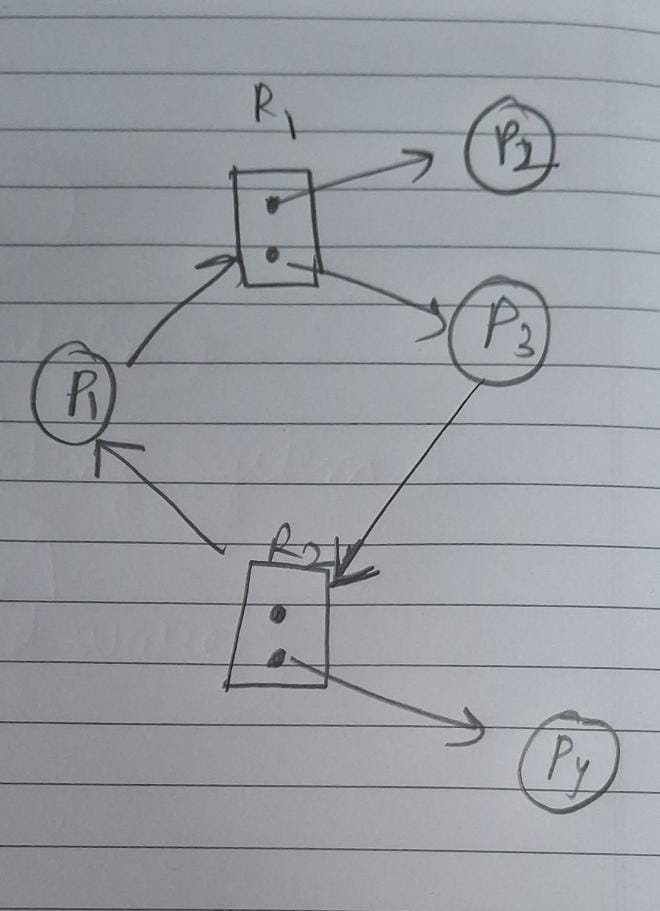 R1
P2
P3
P1
R2
Py